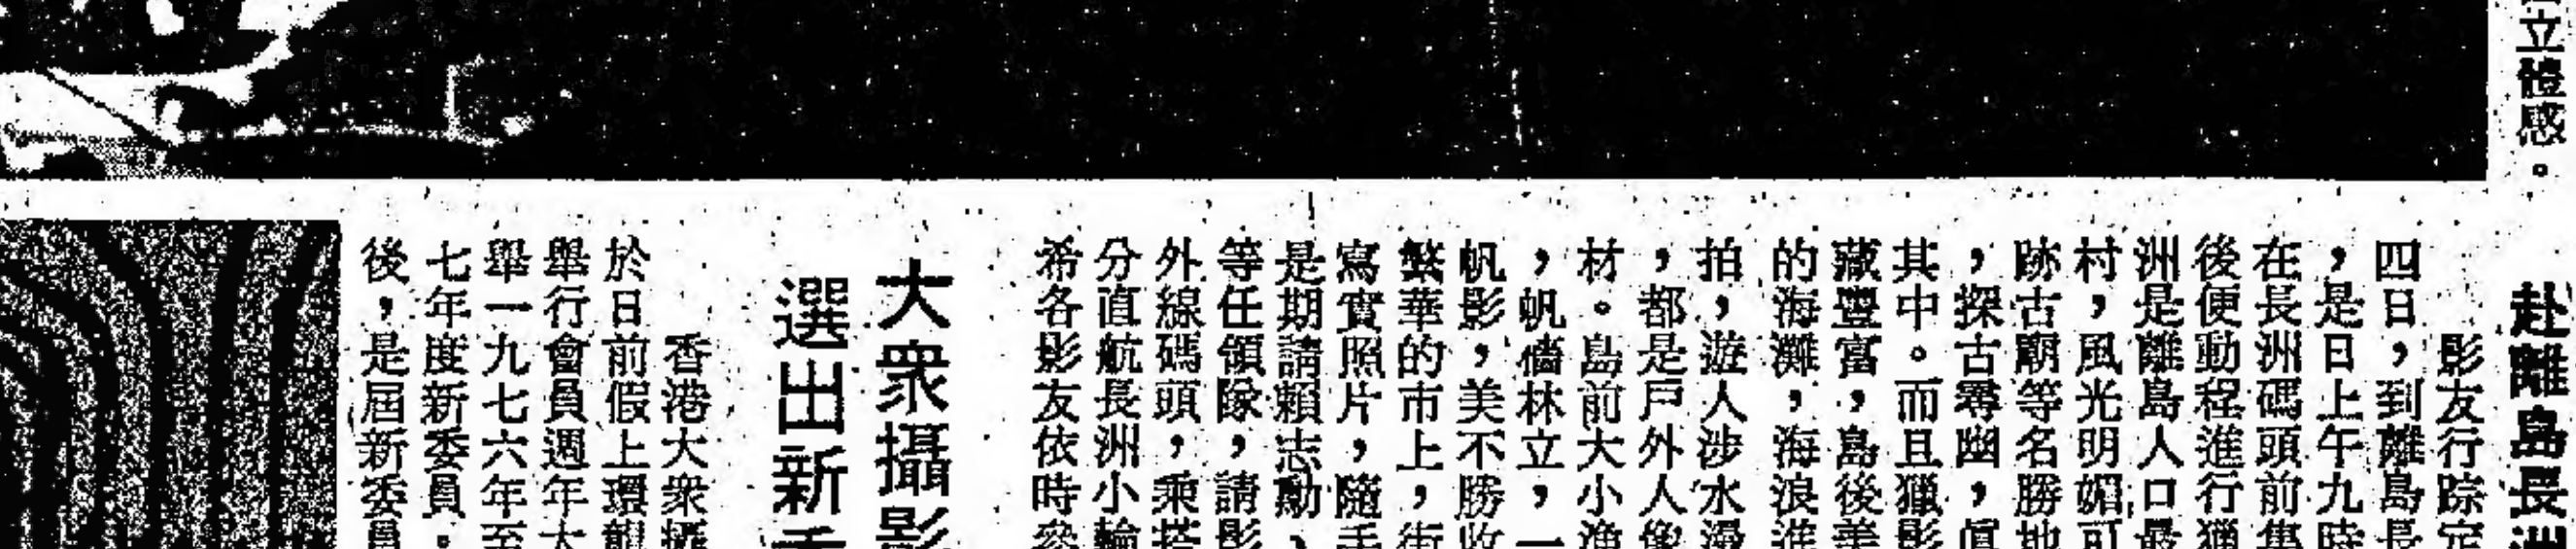 立體感。
赴離島長洲
影友行踪定
四日，到離島長
，是日上午九時
在長洲碼頭前集
後便動程進行獵
洲是離島人口最
村，風光明媚可
跡古廟等名勝地
，探古尋幽，眞
其中。而且獵影
藏豐富，島後美
的海灘，海浪進
拍，遊人涉水漫
，都是戶外人像
材。島前大小漁
，帆檣林立，一
帆影，美不勝收
繁華的市上，街
寫實照片，隨手
是期請賴志勳、
等任領隊，請影
外線碼頭，乘搭
分直航長洲小輪
希各影友依時參
大衆攝影
選出新委
香港大衆攝
於日前假上環
舉行會員週年大
舉一九七六年至
七年度新委員。
後，是屆新委員